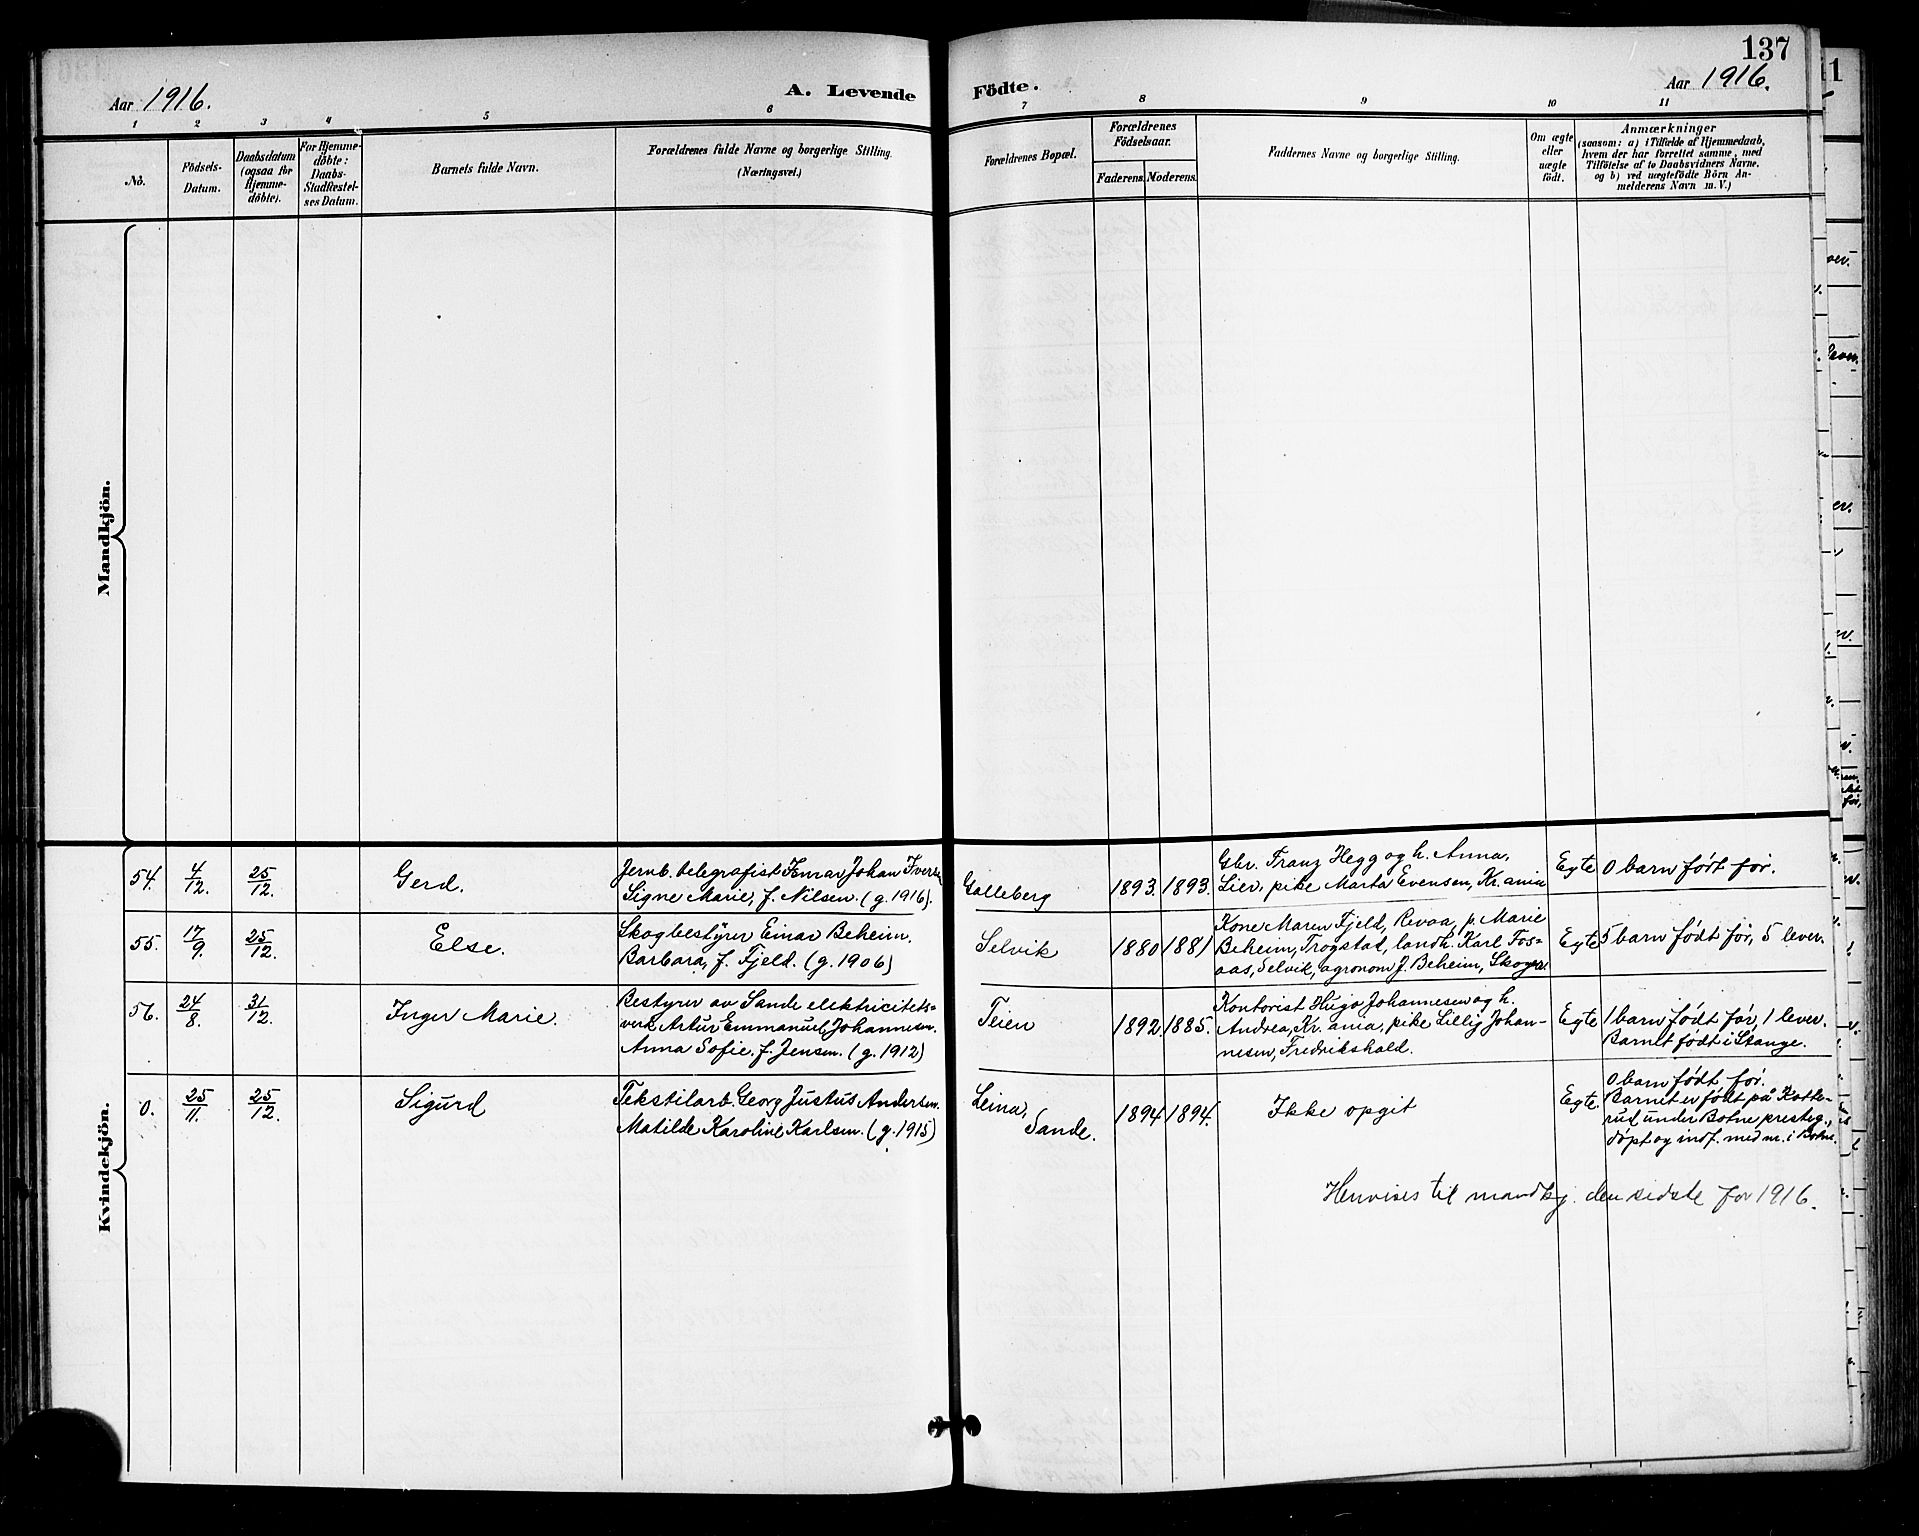 137
Aar 1916.
A. Levende Födte.
Aar 1916.
1 2 3 4 5 6 7 8 9 10 11
No.
Födsels-
Datum.
Daabsdatum
(ogsaa for
Hjemme-
døbte).
For Hjemme-
døbte:
Daabs-
Stadfæstel-
ses Datum.
Barnets fulde Navn.
Forældrenes fulde Navne og borgerlige Stilling.
(Næringsvei.)
Forældrenes Bopæl.
Forældrenes
Födselsaar.
Faderens. Moderens.
Faddernes Navne og borgerlige Stilling.
Om ægte
eller
uægte
født.
Anmærkninger
(saasom: a) i Tilfælde af Hjemmedaab,
hvem der har forrettet samme, med
Tilföielse af to Daabsvidners Navne.
og b) ved uægtefödte Börn An-
melderens Navn m. V.)
Mandkjön.
Kvindekjön.
54.
4/12.
25/12.
Gerd.
Jernb. telegrafist Einar Johan Iversen
Signe Marie, f. Nilsen. (g. 1916).
Galleberg
1893. 1893.
Gbr. Franz Hegg og h. Anna,
Lier, pike Marta Evensen, Kr.ania
Egte
0 barn født før.
55.
17/9.
25/12.
Else.
Skogbestyrer Einar Beheim.
Barbara, f. Fjeld. (g. 1906)
Selvik
1880 1881
Kone Maren Fjeld, Revaa, p. Marie
Beheim, Trøgstad, landh. Karl Fos-
aas, Selvik, agronom J. Beheim, Skoger.
Egte
5 barn født før, 5 lever.
56.
24/8.
31/12.
Inger Marie.
Bestyrer av Sande elektricitets-
verk Artur Emmanuel Johannesen.
Anna Sofie, f. Jensen. (g. 1912)
Teien
1892. 1885.
Kontorist Hugo Johannesen og h.
Andrea, Kr.ania, pike Lilly Johan-
nesen, Fredrikshald.
Egte
1 barn født før, 1 lever.
Barnet født i Stange.
0.
25/11.
25/12.
Sigurd
Tekstilarb. Georg Justus Andersen.
Matilde Karoline Karlsen. (g. 1915)
Leina,
Sande.
1894 1894.
Ikke opgit
Egte.
0 barn født før.
Barnet er født på Kotte-
rud under Botne presteg.,
døpt og indf. med nr. i Botne.
Henvises til mandkj. den sidste for 1916.